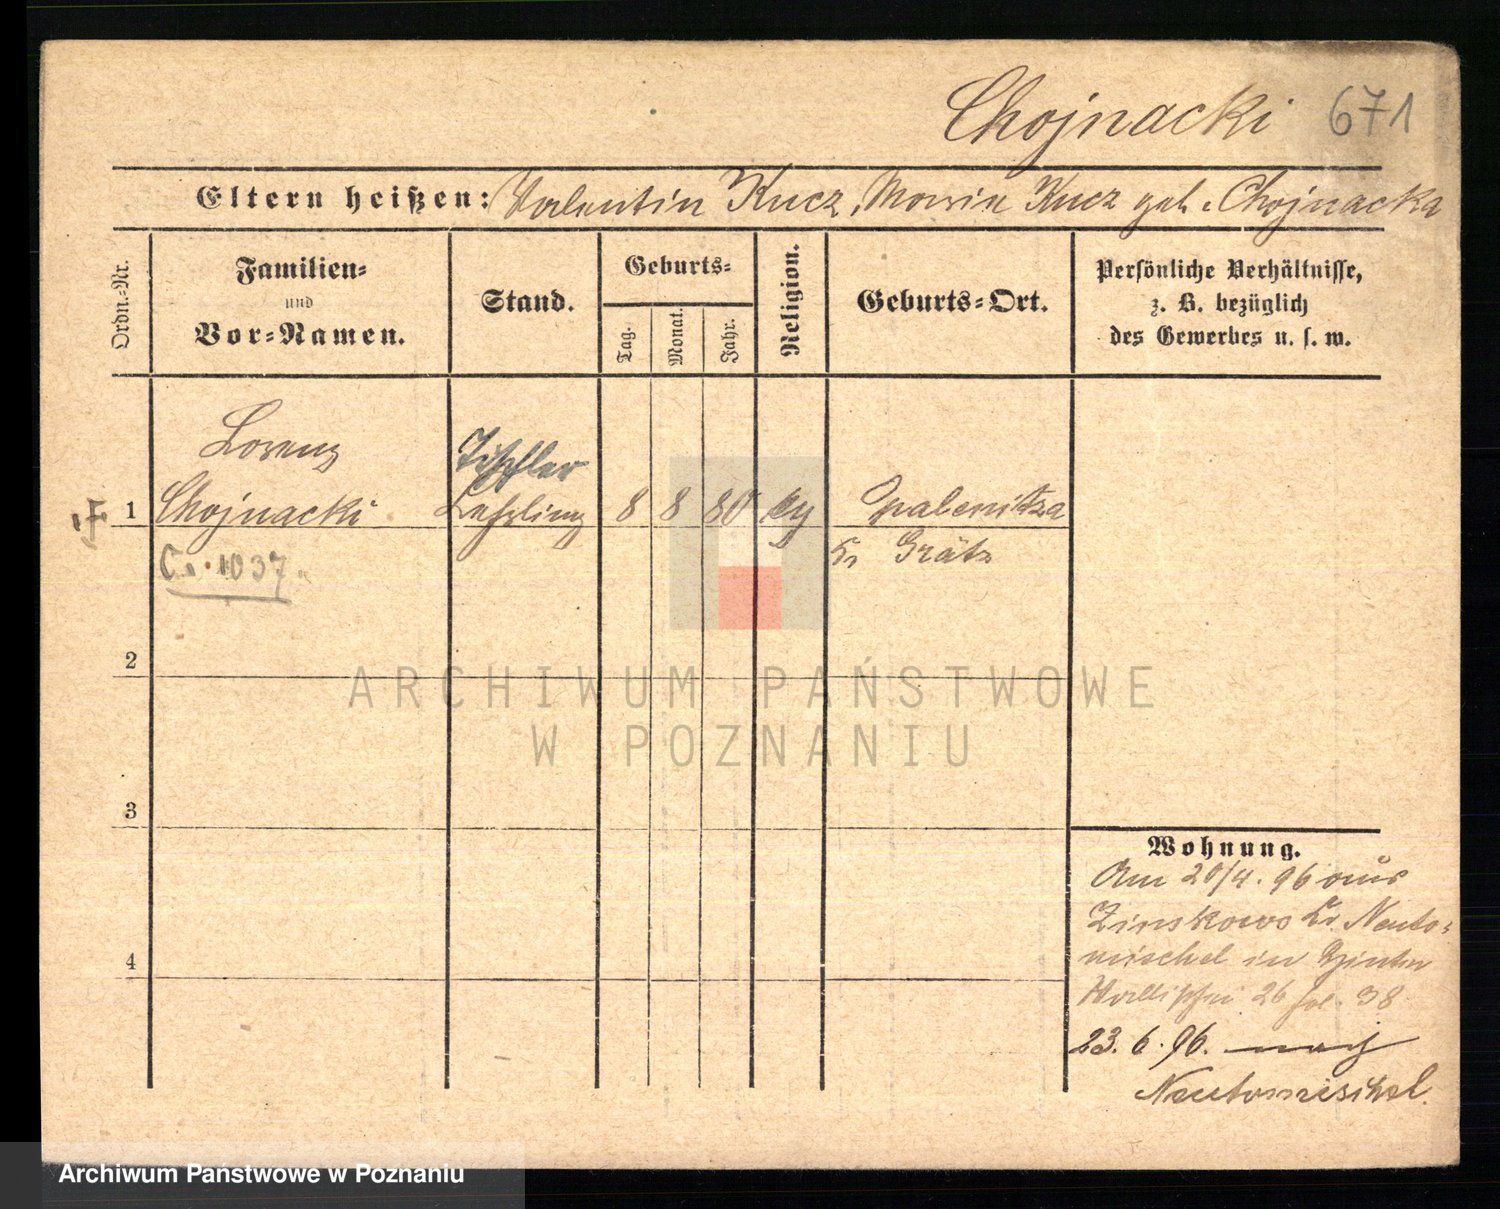 Chojnacki 671
Eltern heißen: Valentin Kucz, Maria Kucz geb. Chojnacka
Ordn.-Nr.
Familien-
und
Vor-Namen.
Stand.
Geburts-
Tag.
Monat.
Jahr.
Religion.
Geburts-Ort.
Persönliche Verhältnisse,
z. B. bezüglich
des Gewerbes u. s. w.
Lorenz
Tischler
1 Chojnacki Lehrling 8 8 80 Opalenitza
Kr Grätz
C. 1037.
2
3
4
Wohnung.
Am 20/4. 96 aus
Zinskowo Kr. Neuto-
mischel in
Wallischei 26 fol. 38
23. 6. 96. nach
Neutomischel.
ARCHIWUM PAŃSTWOWE
W POZNANIU
Archiwum Państwowe w Poznaniu